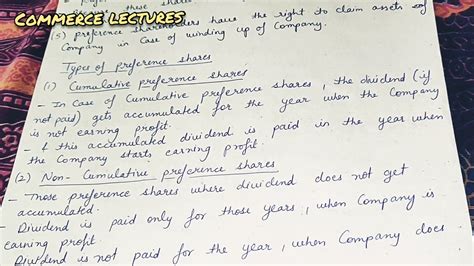 COMMERCE LECTURES
these shares
(5) preference shareholders have the right to claim assets of
Company in Case of winding up of Company.
Types of preference shares
(1) Cumulative preference shares
- In Case of Cumulative preference shares, the dividend (if
not paid) gets accumulated for the year when the Company
is not earning profit.
- & this accumulated dividend is paid in the year when
the Company starts earning profit.
(2) Non- Cumulative preference shares
- Those preference shares where dividend does not get
accumulated.
- Dividend is paid only for those years, when Company is
earning profit.
Dividend is not paid for the year, when Company does